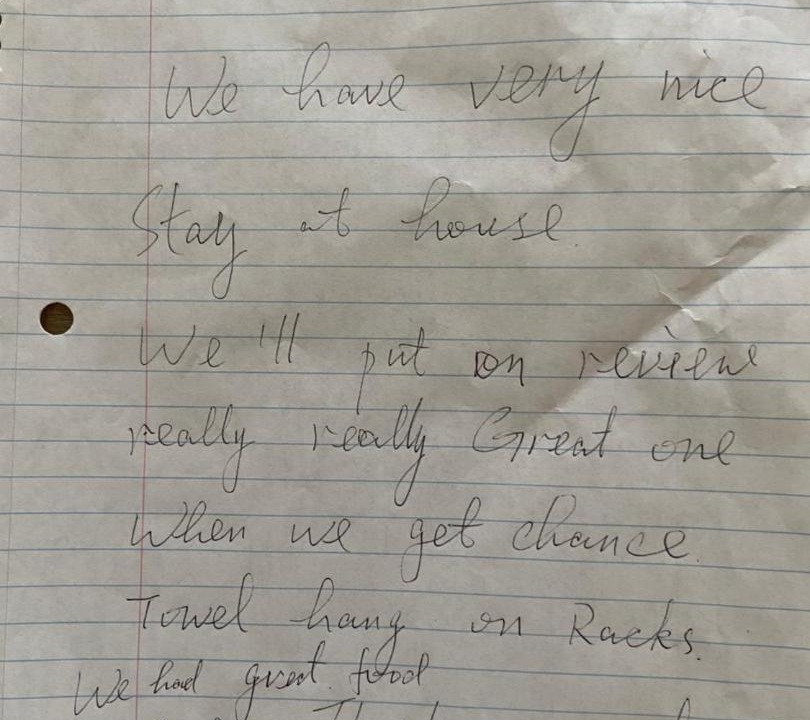 We have very nice
Stay at house.
We'll put on review
really really Great one
When we get chance.
Towel hang on Racks.
We had great food